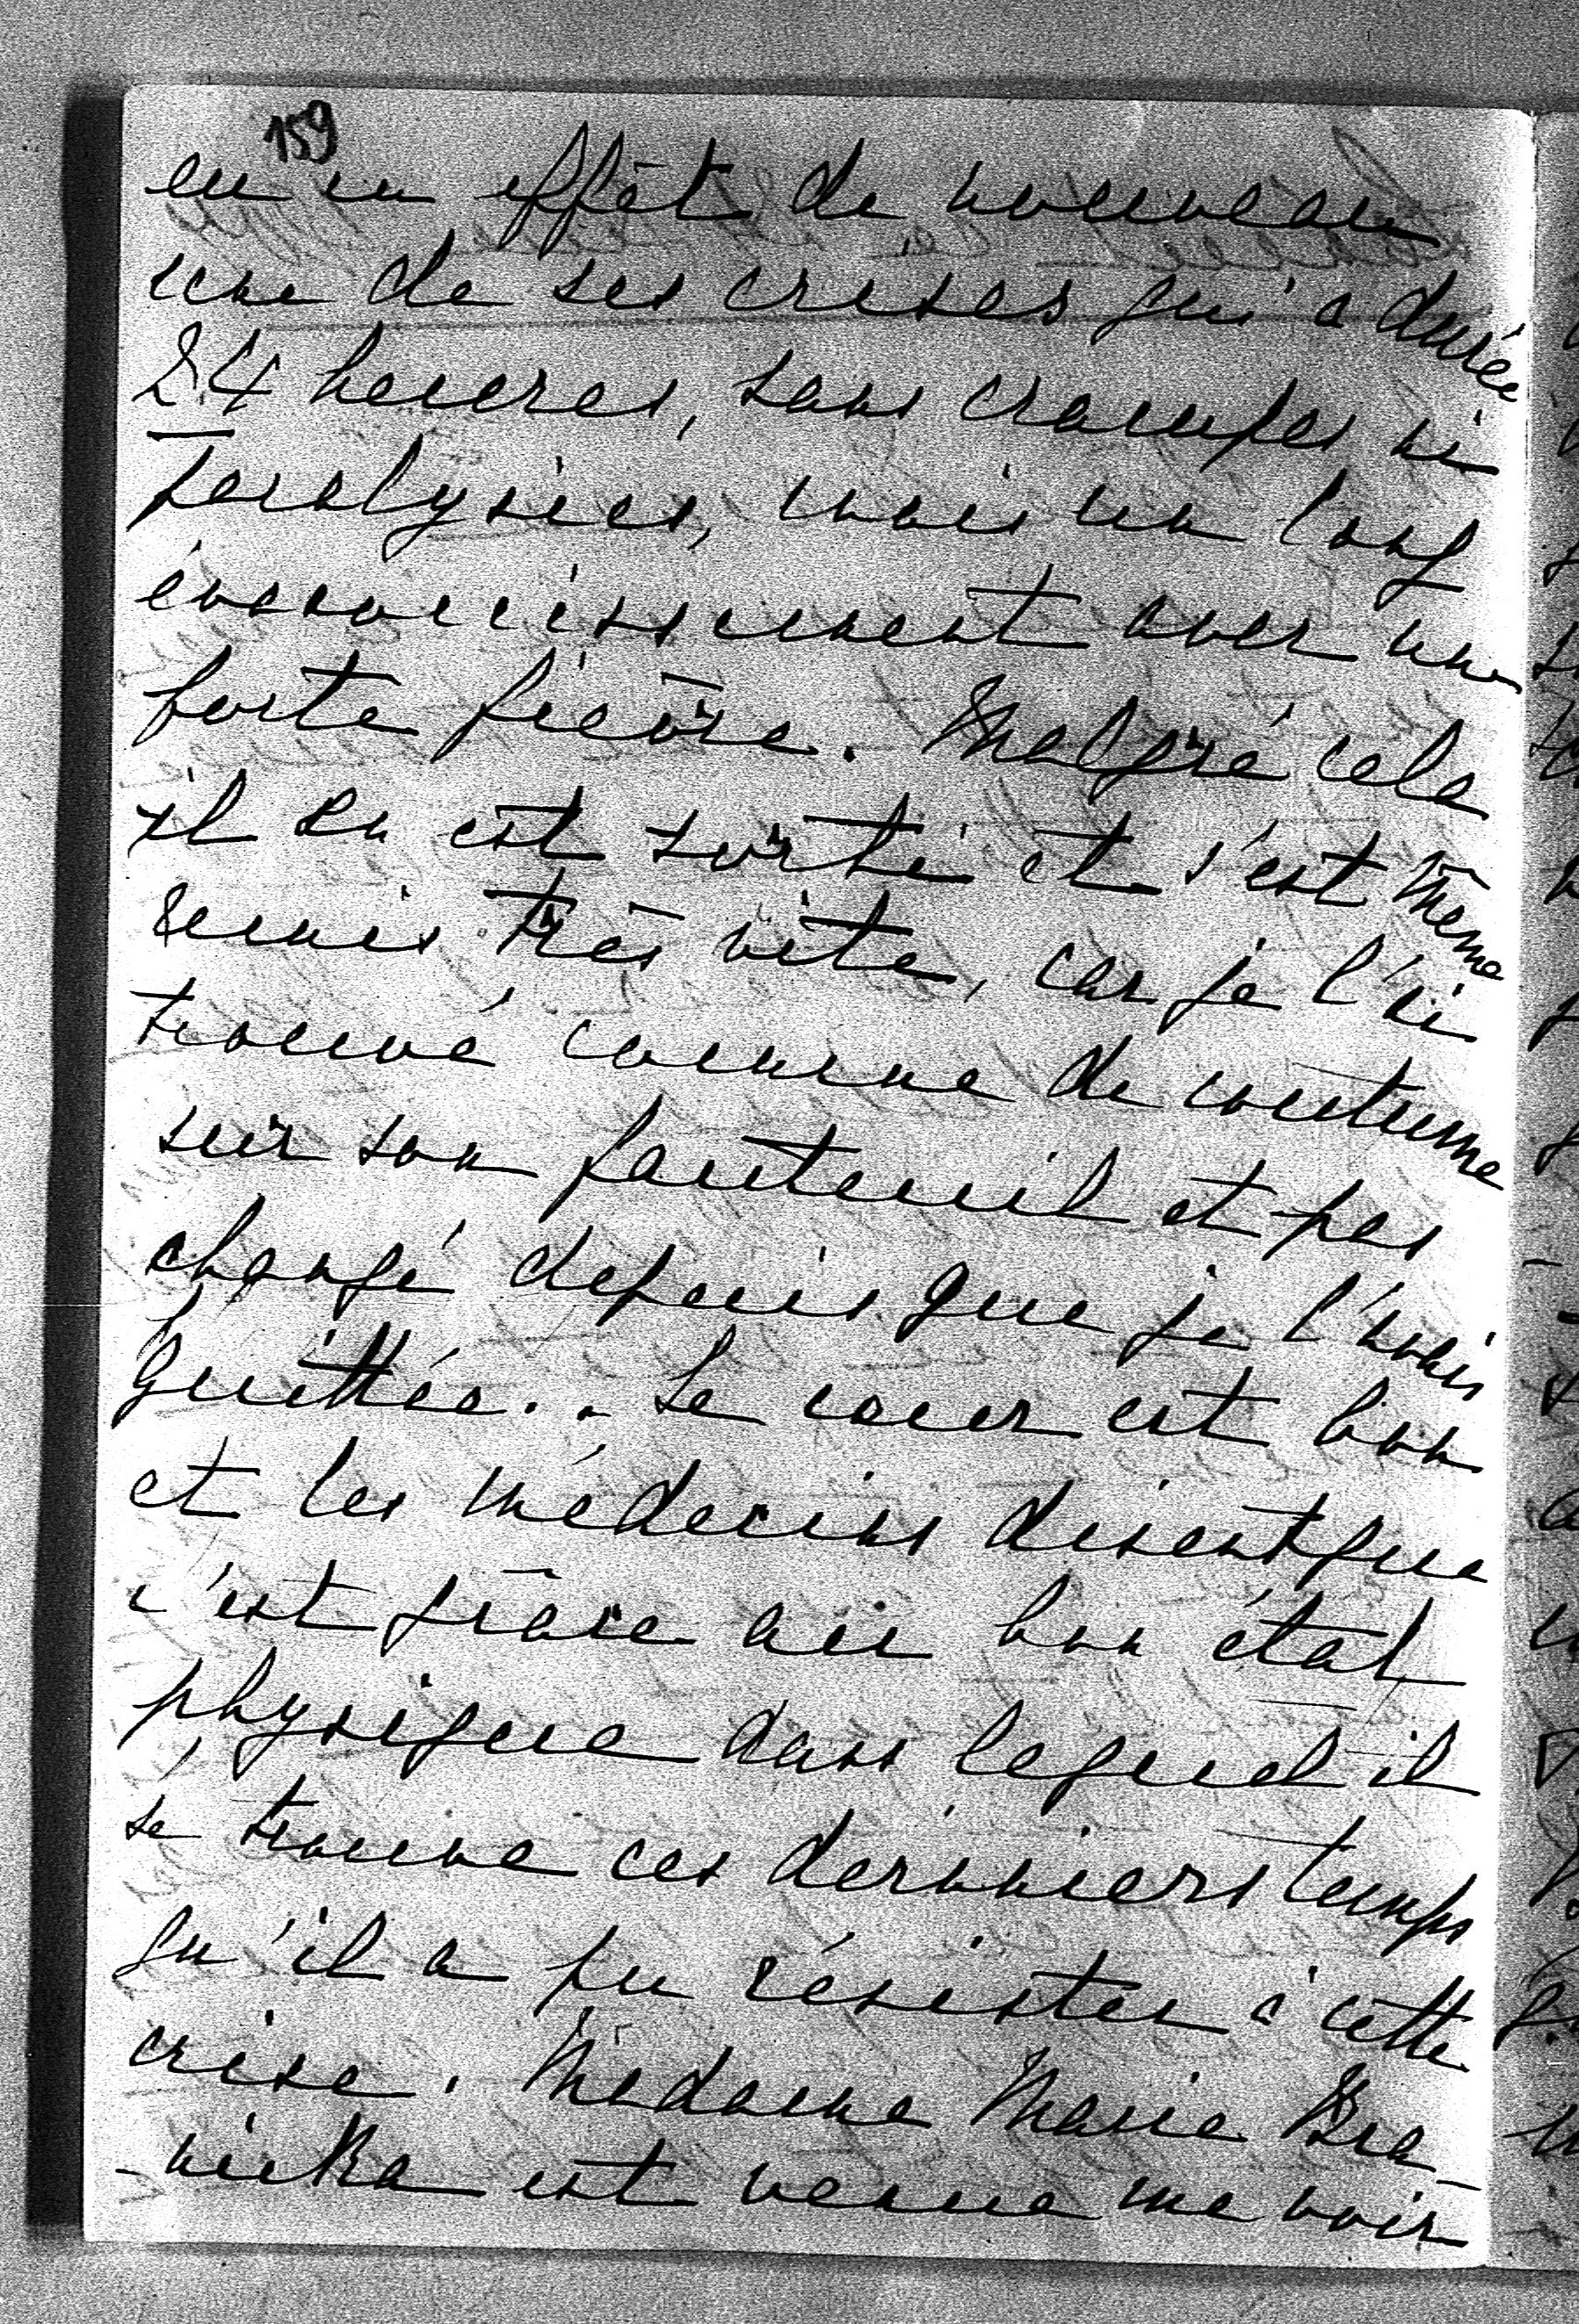 159
eu en effêt de nouveau
une de ses crises qui a durée
24 heures, sans crampes ni
paralysies, mais un long
évanouissement avec une
forte fièvre. Malgré cela
il en est sorti et s'est même
remis très vite, car je l'ai
trouvé comme de coutume
sur son fauteuil et pas
changé depuis que je l'avais
quittée. Le coeur est bon
et les médecins disent que
c'est grâce au bon état
physique dans lequel il
se trouve ces derniers temps
qu'il a pu résister à cette
crise. Madame Marie Bra-
-nicka est venue me voir